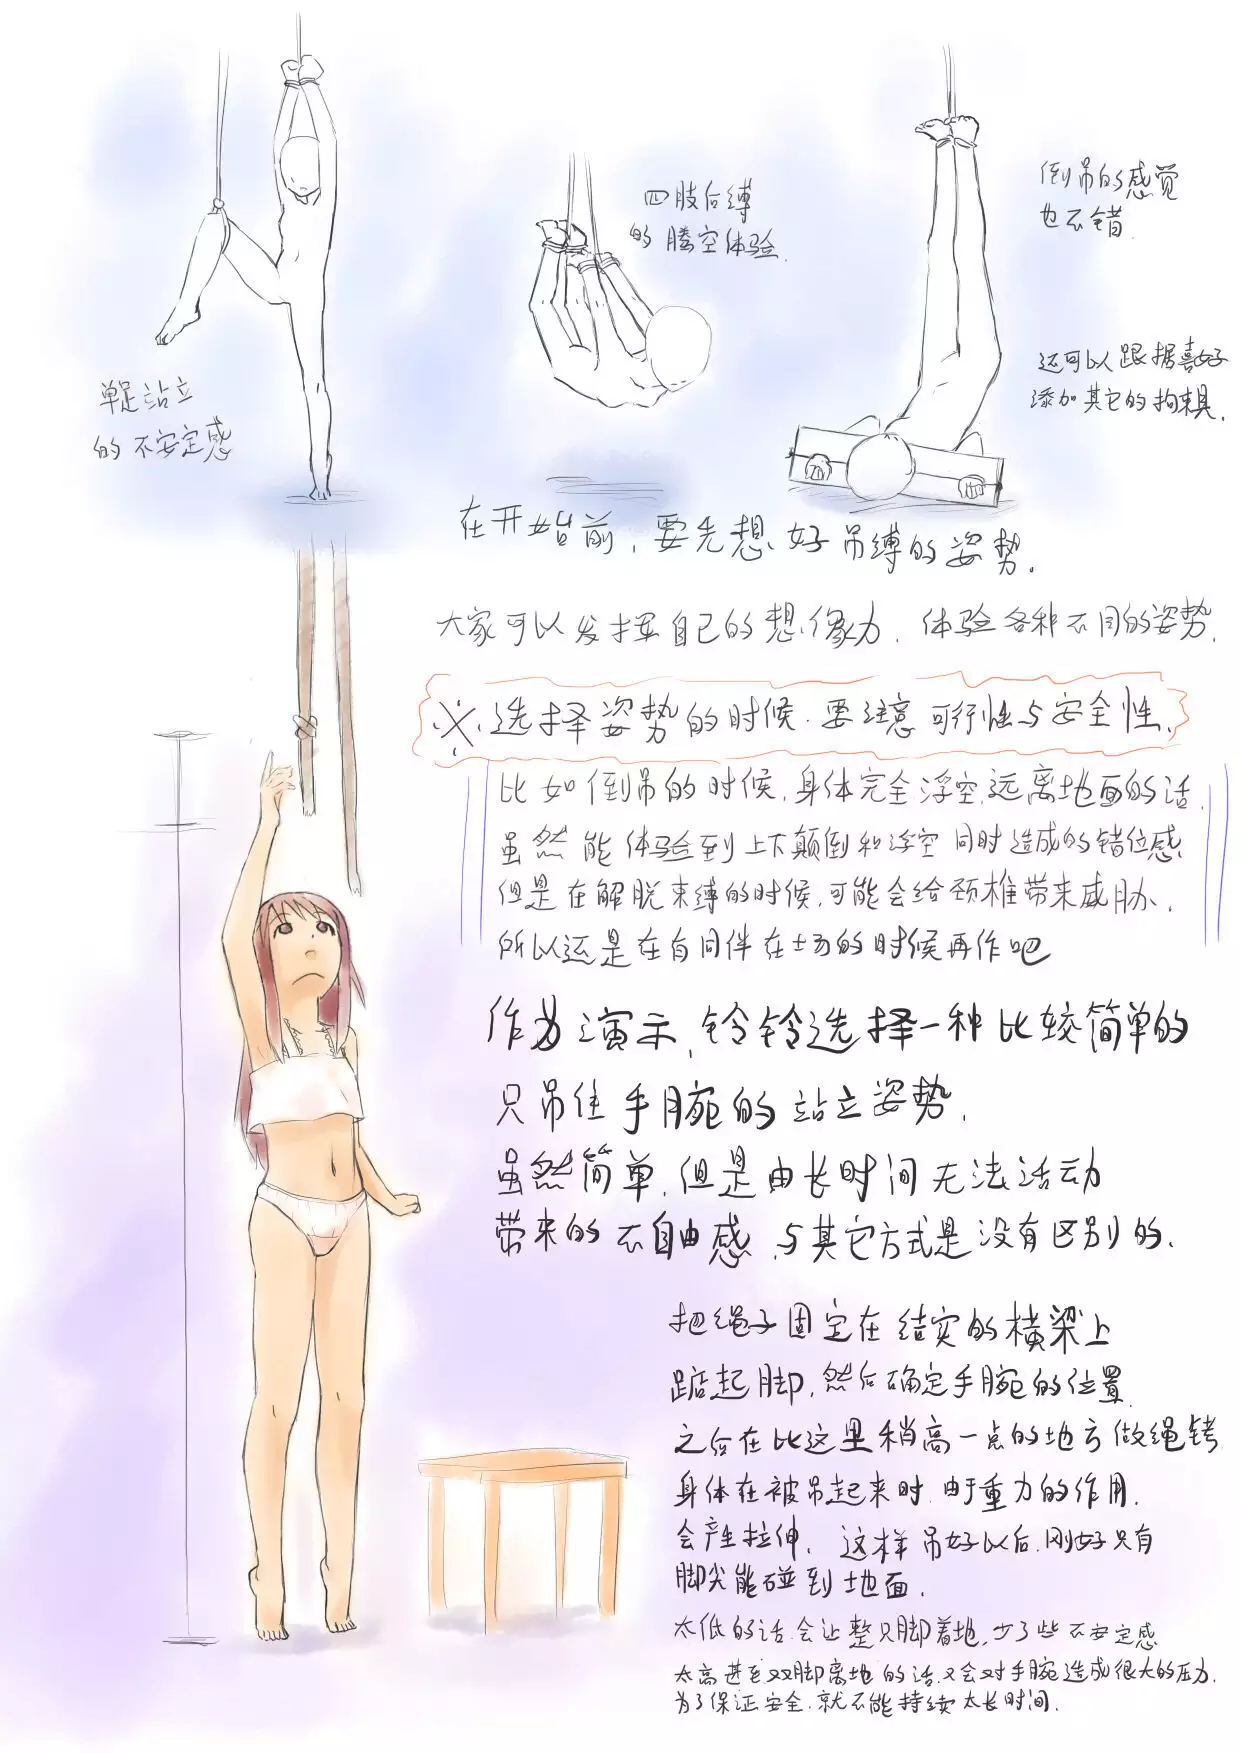 单足站立
的不安定感
四肢后缚
的腾空体验.
倒吊的感觉
也不错.
还可以跟据喜好
添加其它的拘束具.
在开始前,要先想好吊缚的姿势.
大家可以发挥自己的想像力,体验各种不同的姿势.
※.选择姿势的时候.要注意可行性与安全性.
比如倒吊的时候,身体完全浮空,远离地面的话.
虽然能体验到上下颠倒和浮空同时造成的错位感.
但是在解脱束缚的时候,可能会给颈椎带来威胁.
所以还是在有同伴在场的时候再作吧
作为演示,铃铃选择一种比较简单的
只吊住手腕的站立姿势.
虽然简单,但是由长时间无法活动
带来的不自由感,与其它方式是没有区别的.
把绳子固定在结实的横梁上
踮起脚,然后确定手腕的位置
之后在比这里稍高一点的地方做绳铐
身体在被吊起来时,由于重力的作用.
会产生拉伸.这样吊好以后,刚好只有
脚尖能碰到地面.
太低的话.会让整只脚着地,少了些不安定感
太高甚至双脚离地的话.又会对手腕造成很大的压力.
为了保证安全.就不能持续太长时间.